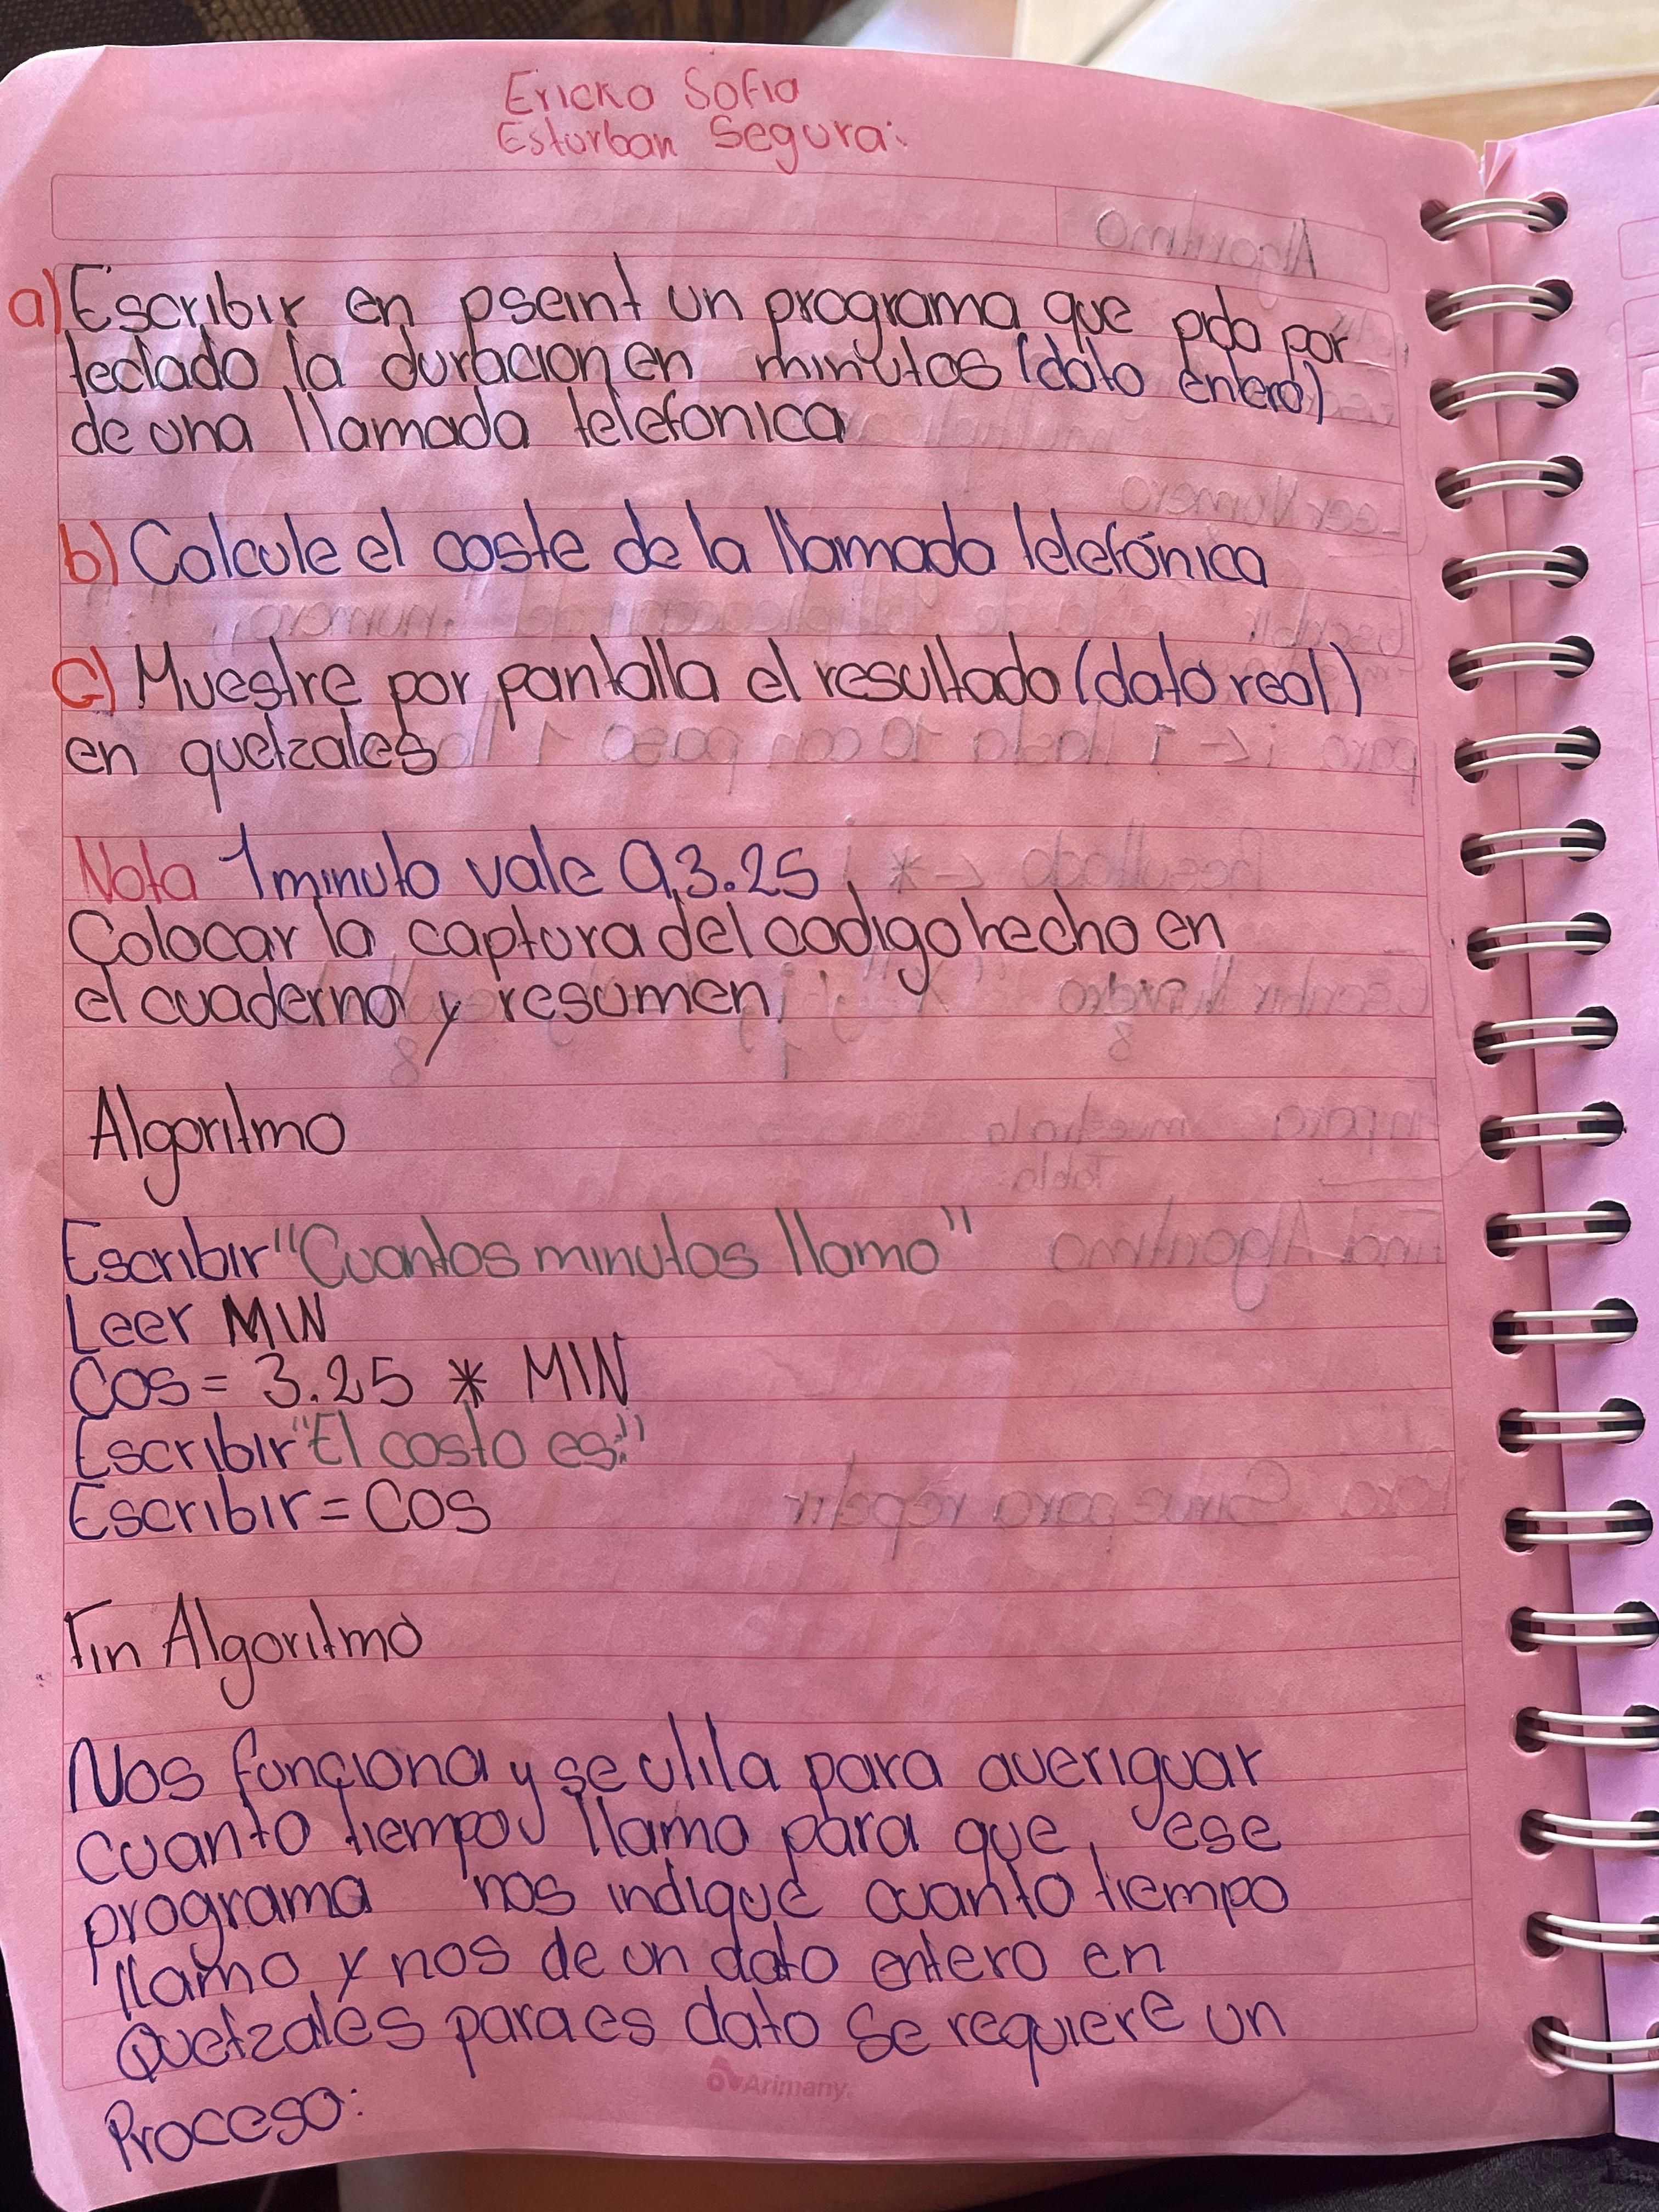 Ericka Sofia
Esturban Segura:
a) Escribir en pseint un programa que pida por
teclado la duracion en minutos (dato entero)
de una llamada telefonica
b) Calcule el coste de la llamada telefónica
c) Muestre por pantalla el resultado (dato real)
en quetzales
Nota 1 minuto vale Q3.25
Colocar la captura del codigo hecho en
el cuaderno y resumen
Algoritmo
Escribir "Cuantos minutos llamo"
Leer MIN
Cos = 3.25 * MIN
Escribir "El costo es:"
Escribir = COS
Fin Algoritmo
Nos funciona y se utila para averiguar
cuanto tiempo llamo para que ese
programa nos indique cuanto tiempo
llamo y nos de un dato entero en
Quetzales para es dato se requiere un
Proceso:
Arimany